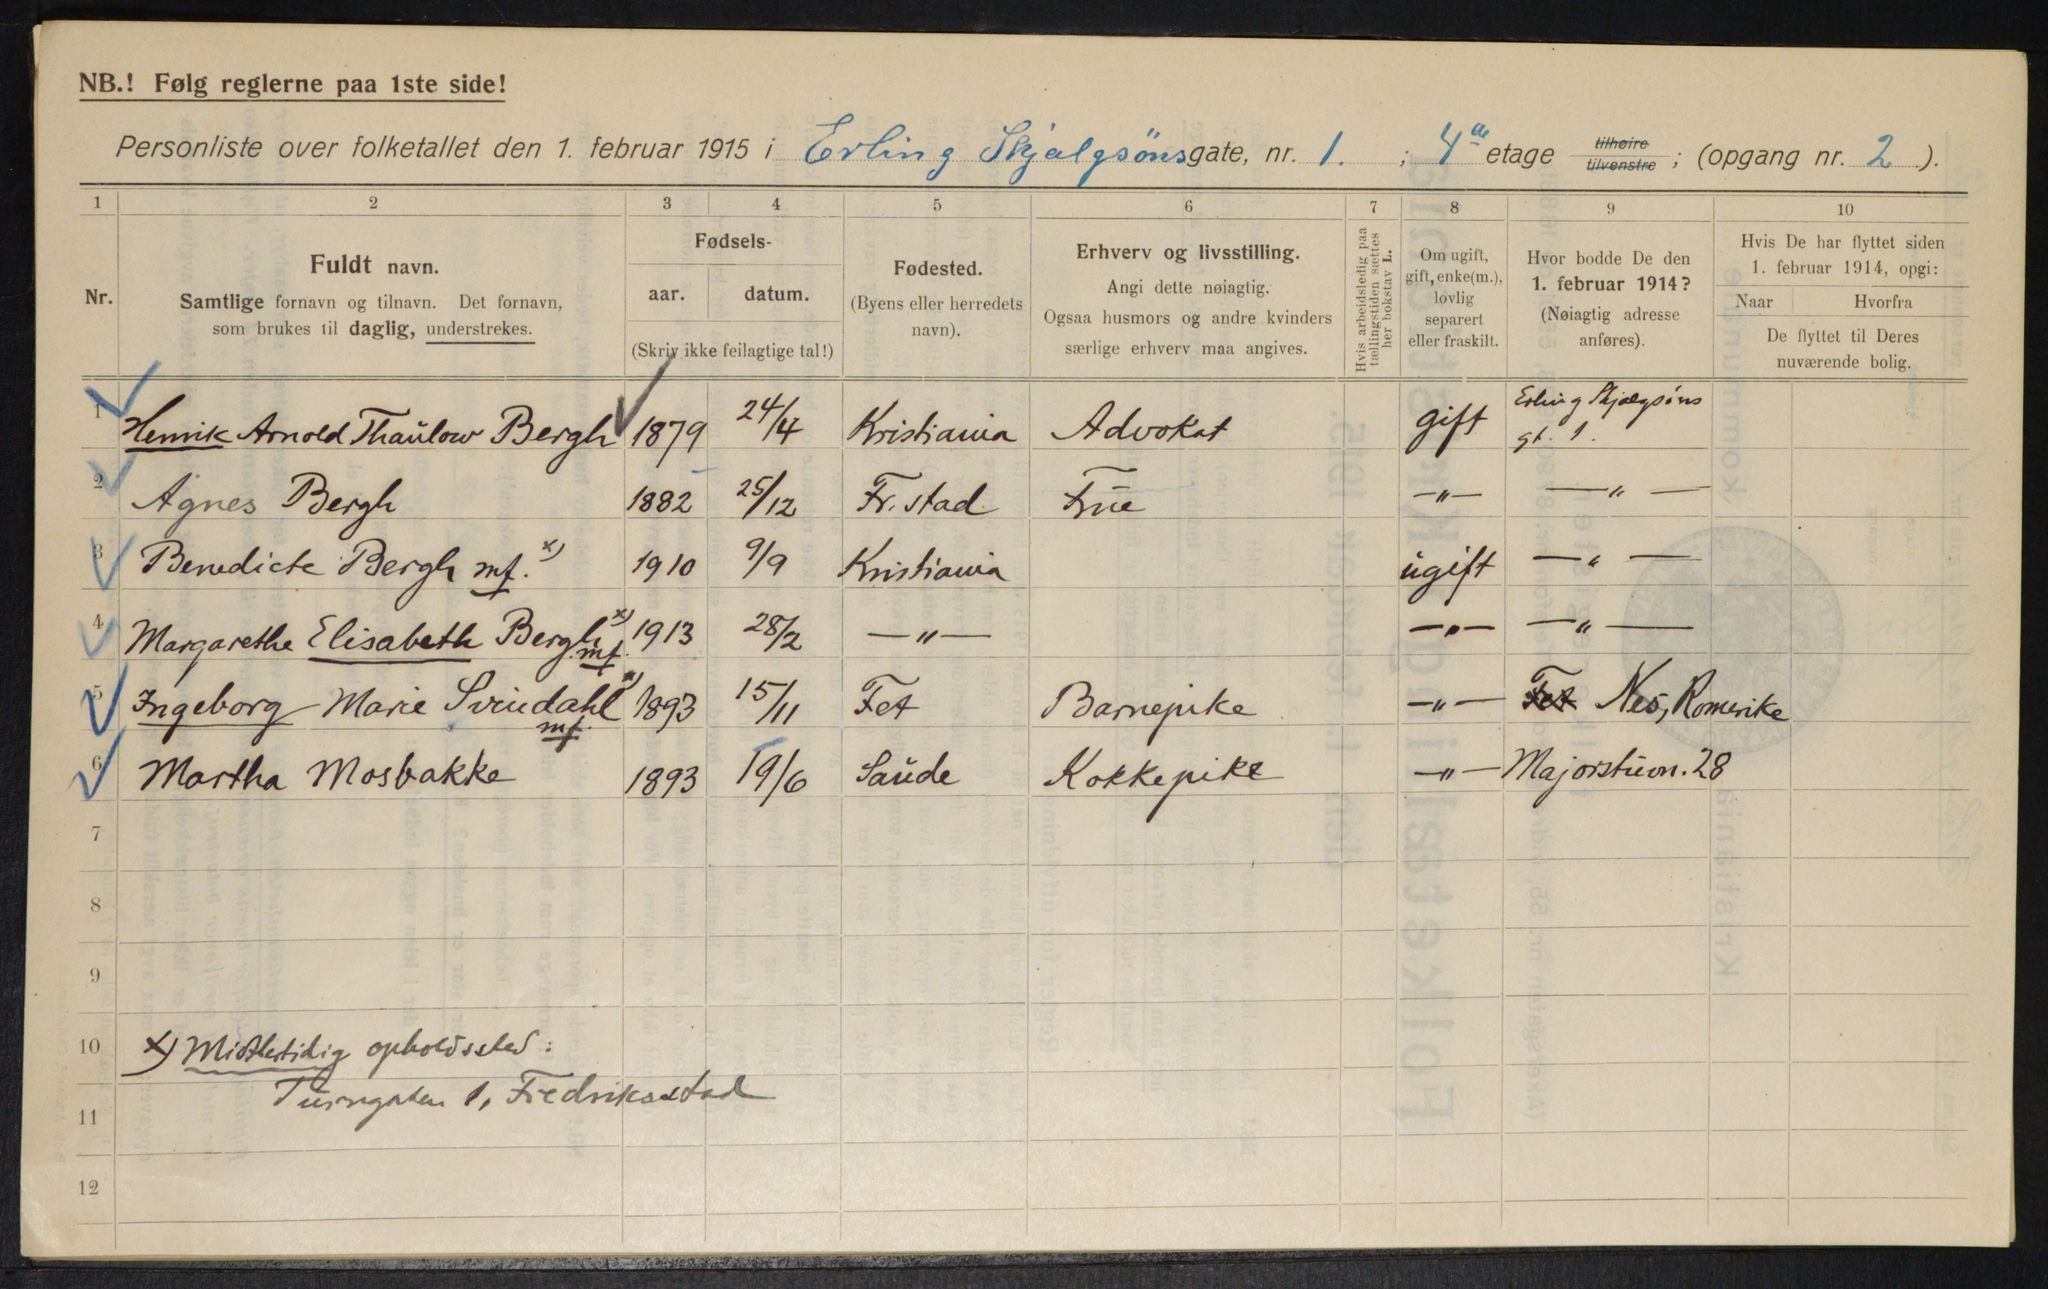 NB.! Følg reglerne paa 1ste side!
Personliste over folketallet den 1. februar 1915 i Erling Skjalgsönsgate, nr. 1. ; 4de etage tilhøire tilvenstre ; (opgang nr. 2 ).
1 2 3 4 5 6 7 8 9 10
Nr.
Fuldt navn.
Samtlige fornavn og tilnavn. Det fornavn,
som brukes til daglig, understrekes.
Fødsels-
aar. datum.
(Skriv ikke feilagtige tal!)
Fødested.
(Byens eller herredets
navn).
Erhverv og livsstilling.
Angi dette nøiagtig.
Ogsaa husmors og andre kvinders
særlige erhverv maa angives.
Hvis arbeidsledig paa
tællingstiden sættes
her bokstav L.
Om ugift,
gift, enke(m.),
lovlig
separert
eller fraskilt.
Hvor bodde De den
1. februar 1914?
(Nøiagtig adresse
anføres).
Hvis De har flyttet siden
1. februar 1914, opgi:
Naar Hvorfra
De flyttet til Deres
nuværende bolig.
1 Henrik Arnold Thaulow Bergh 1879 24/4 Kristiania Advokat gift Erling Skjalgsøns gt. 1.
2 Agnes Bergh 1882 25/12 Fr.stad Frue —„— —„—
3 Benedicte Bergh mf. x) 1910 9/9 Kristiania ugift —„—
4 Margarethe Elisabeth Bergh x) mf. 1913 28/2 —„— —„— —„—
5 Ingeborg Marie Svindahl x) mf. 1893 15/11 Fet Barnepike —„— Fet Nes, Romerike
6 Martha Mosbakke 1893 19/6 Saude Kokkepike —„— Majorstuvn. 28
7
8
9
10 x) Midlertidig opholdssted:
11 Turngaten 1, Fredriksstad
12